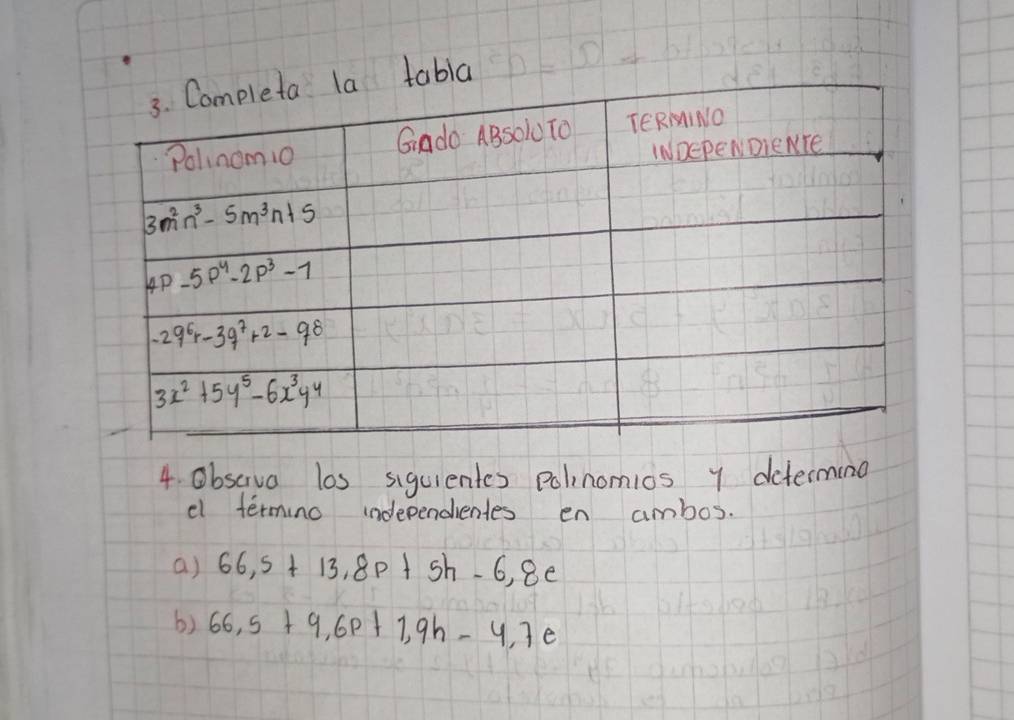 3. Completa la tabla
Polinomio | Grado ABSOLUTO | TERMINO INDEPENDIENTE
3m²n³ - 5m³n + 5
4p - 5p⁴ - 2p³ - 1
-2q⁶r - 3q⁷ + 2 - q8
3x² + 5y⁵ - 6x³y4
4. Observa los siguientes Polinomios y determina
el término independientes en ambos.
a) 66,5 + 13,8p + 5h - 6,8e
b) 66,5 + 9,6p + 1,9h - 4,7e